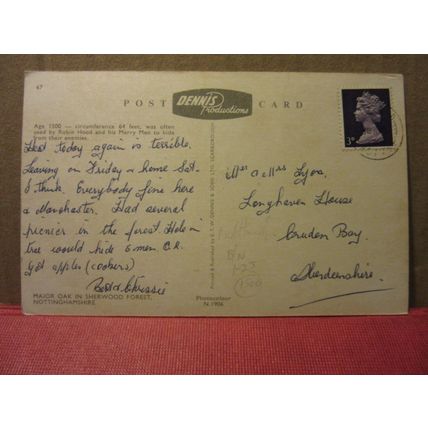 67
POST CARD
DENNIS
Productions
Age 1500 — circumference 64 feet, was often
used by Robin Hood and his Merry Men to hide
from their enemies.
Heat today again is terrible.
Leaving on Friday & home Sat.
I think. Everybody fine here
& Manchester. Had several
picnics in the forest Hole in
tree would hide 6 men. C.R.
get apples (cookers)
Bert & Chrissie
MAJOR OAK IN SHERWOOD FOREST,
NOTTINGHAMSHIRE.
Printed & Published by E. T. W. DENNIS & SONS LTD. SCARBOROUGH
Photocolour
N.1906
3D
Mr & Mrs Lyon,
Longhaven House
Cruden Bay.
Aberdeenshire.